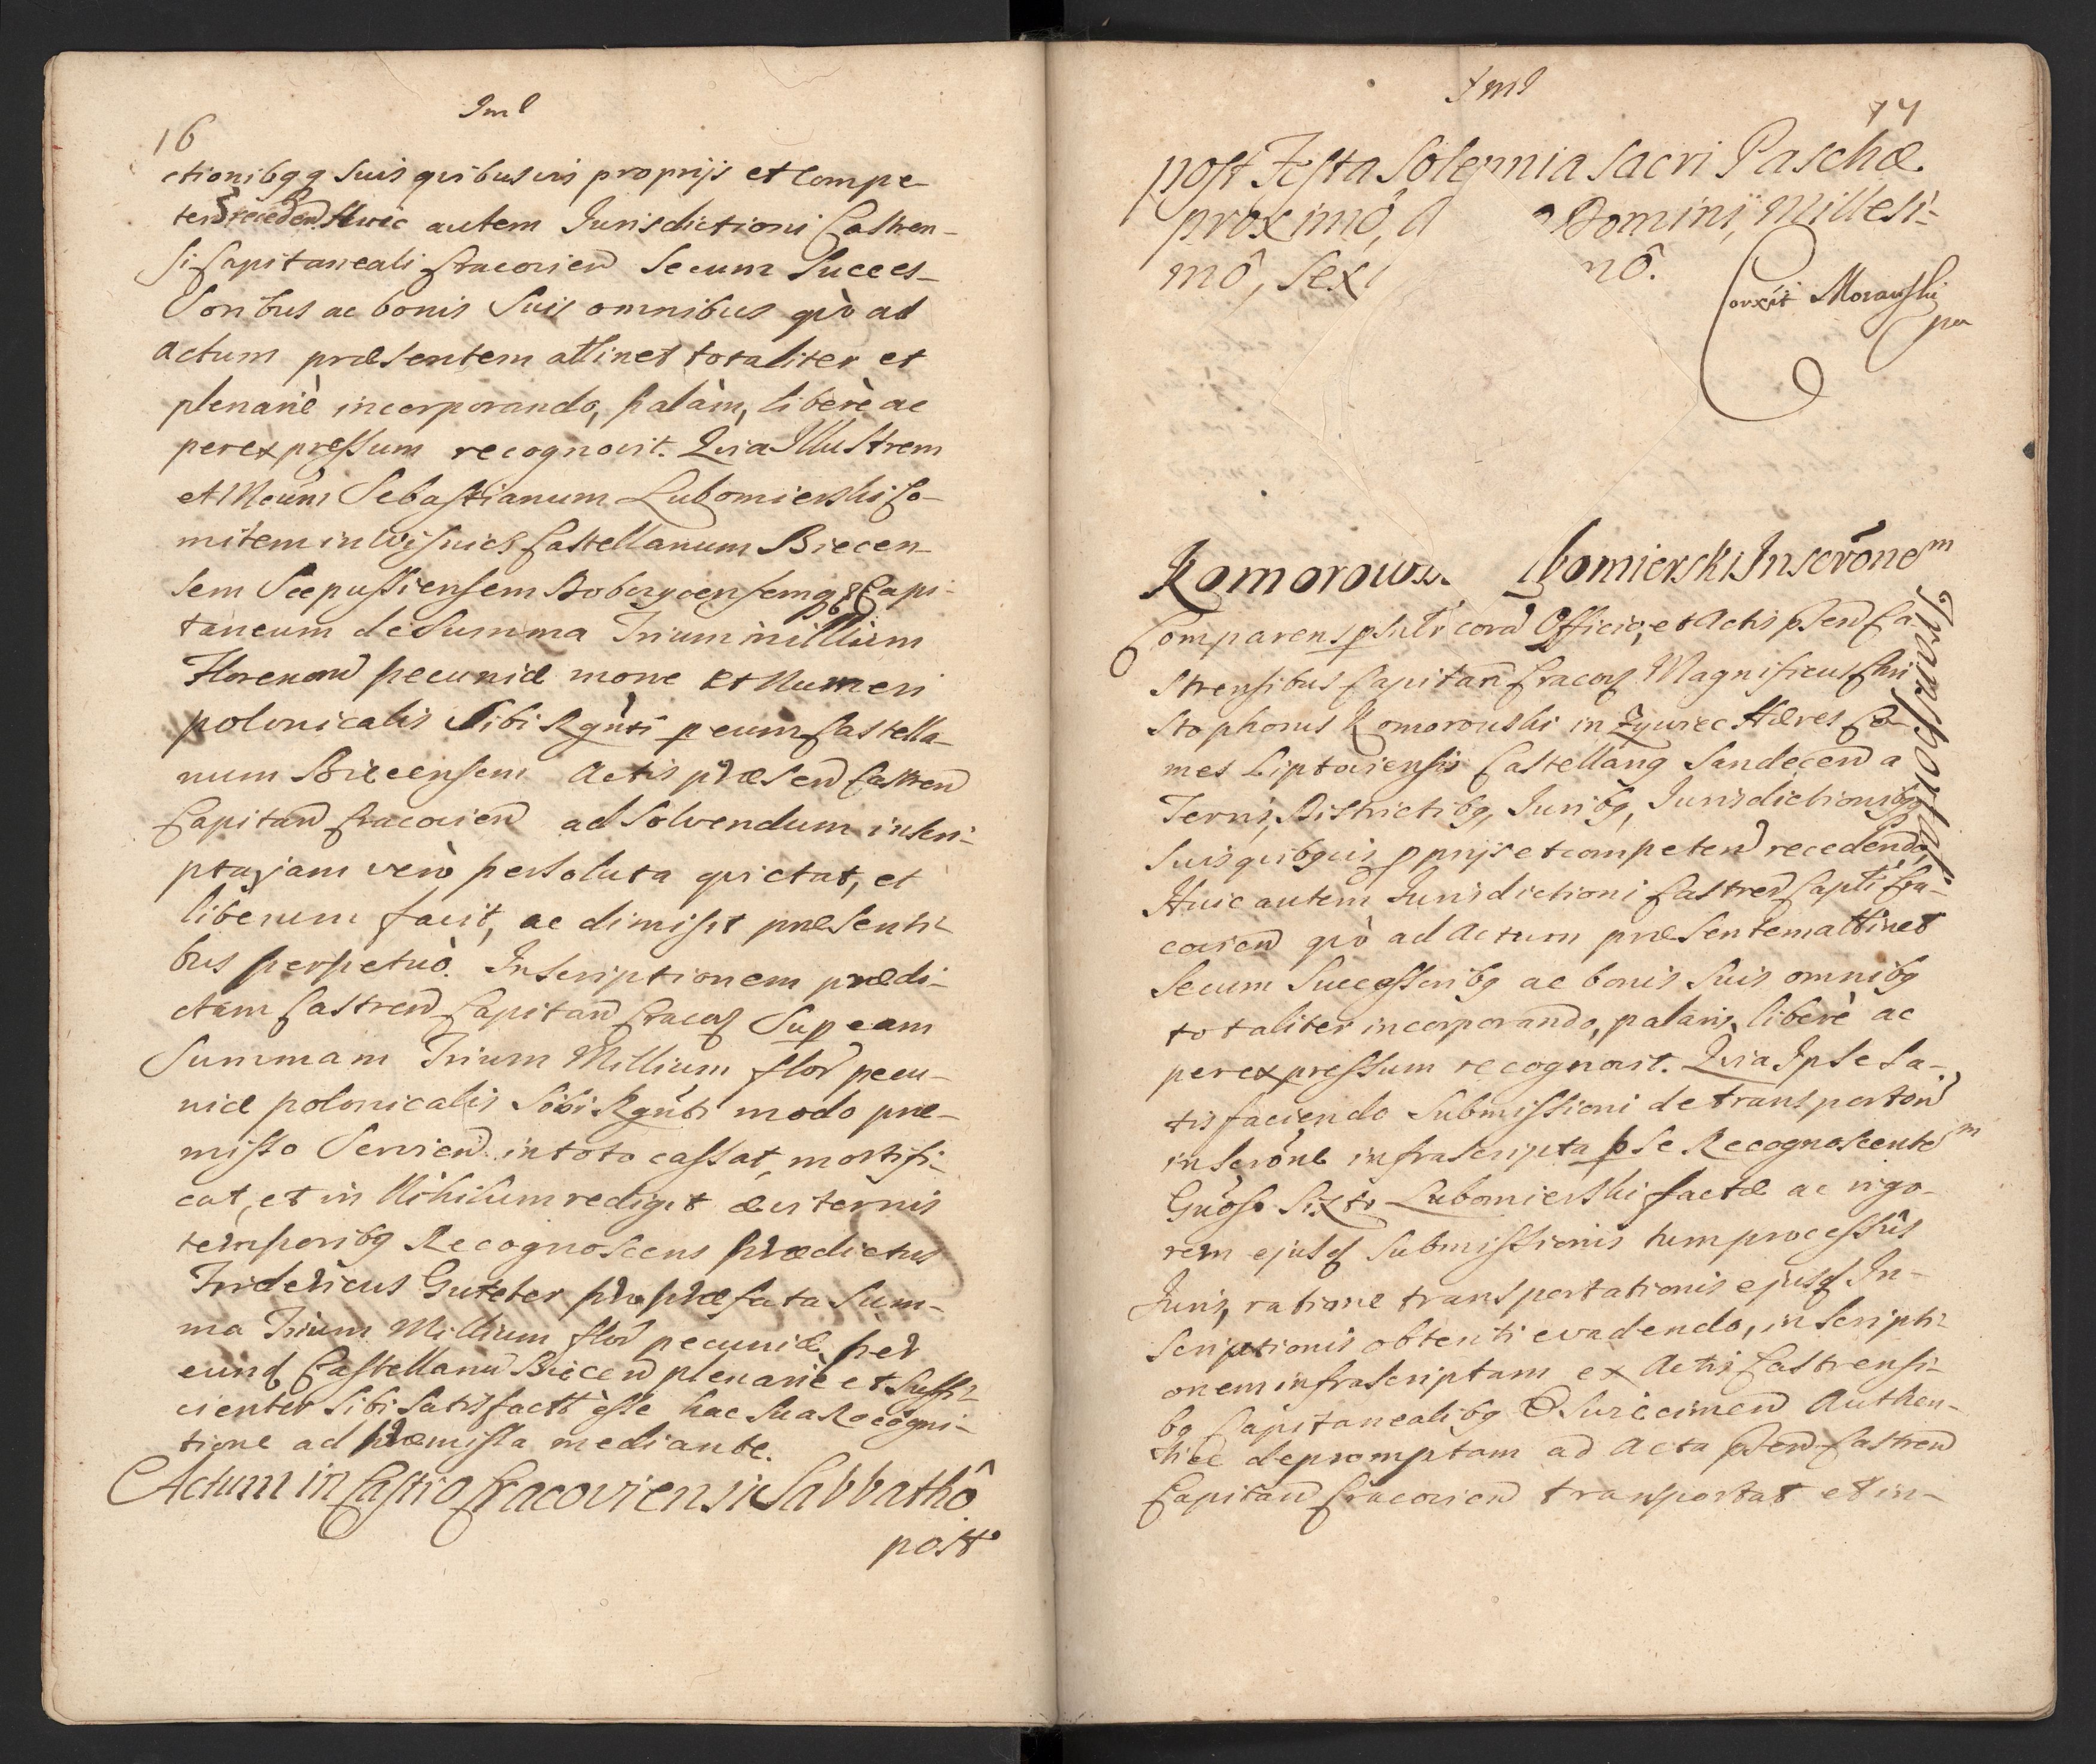 Iml
16
ctionibqq suis quibusvis proprijs et Compe-
ten receden Huic autem Jurisdictioni Castren-
si Capitaneali Cracovien Secum Succes-
Soribus ac bonis Suis omnibus quò ad
actum præsentem attinet totaliter et
plenariè incorporando, palàm, liberè ac
perexpressum recognovit. Quia Illustrem
et Mcum Sebastianum Lubomierski Co-
mitem in Wisnicz Castellanum Biecen-
sem Scepussiensem Dobczycensemqz Capi-
taneum de Summa Trium millium
Florenon pecuniæ mone et Numeri
polonicalis Sibi Rgnti p eum Castella-
num Biecensem Actis præsen Castren
Capitan Cracovien ad Solvendum inscri-
pta, jam verò persoluta quietat, et
liberum facit, ac dimisit præsenti-
bus perpetuò. Inscriptionem prædi-
ctam Castren Capitan Cracoq Sup eam
Summam Trium Millium flor pecu-
niæ polonicalis Sibi Rgnti modo præ-
misso Servien in toto cassat, mortifi-
cat, et in Nihilum redigit æviternis
temporibq Recognoscens prædictus
Fridericus Guteter pro præfata Sum-
ma Trium Millium flor pecuniæ per
eund Castellanu Biecen plenariè et Suffi-
cienter Sibi Satisfactt esse hac Sua Recogni-
tione ad præmissa mediante.
Actum in Castro Cracoviensi Sabbathô
post
Iml
17
post Festa Solemnia Sacri Paschæ
proximô, A Domini, Millesi-
mô, Sex nô.
Corxit Morawski
pa
Komorows. bomierski Inscrônem
Transportat
Comparens psnlr corã Officio, et Actis psen Ca-
strensibus Capitan Cracoq Magnificus Chri-
stophorus Komorowski in Zywiec Hæres Co-
mes Liptoviensis Castellanq Sandecen a
Terris, Districtibq, Juribq, Jurisdictionibqq
Suis quibqvis pprijs et competen recedendo,
Huic autem Jurisdictioni Castren Capti Cra-
covien quò ad Actum præsentem attinet
Secum Successoribq ac bonis Suis omnibq
totaliter incorporando, palàm, liberè ac
perexpressum recognovit. Quia Ipse Sa-
tisfaciendo Submissioni de transporton
inscrône infrascripta p Se Recognoscentem
Gnoso Sixto Lubomierski factæ ac vigo-
rem ejusd Submissionis tum processûs
Juris, ratione transportationis ejusd In-
scriptionis obtenti evadendo, inscripti-
onem infrascriptam ex Actis Castrensi-
bq Capitanealibq Osvieciemen Authen-
tice depromptam ad Acta psen Castren
Capitan Cracovien transportat et in-